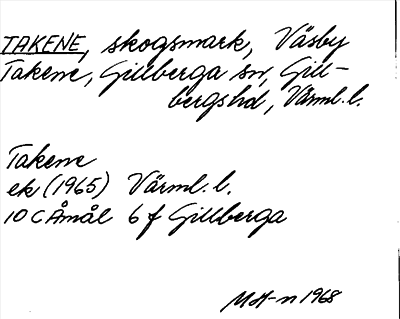 TAKENE, skogsmark, Väsby
Takene, Gillberga sn, Gill-
bergshd, Värml. l.
Takene
ek (1965) Värml. l.
10 C Åmål 6 f Gillberga
MH-n 1968